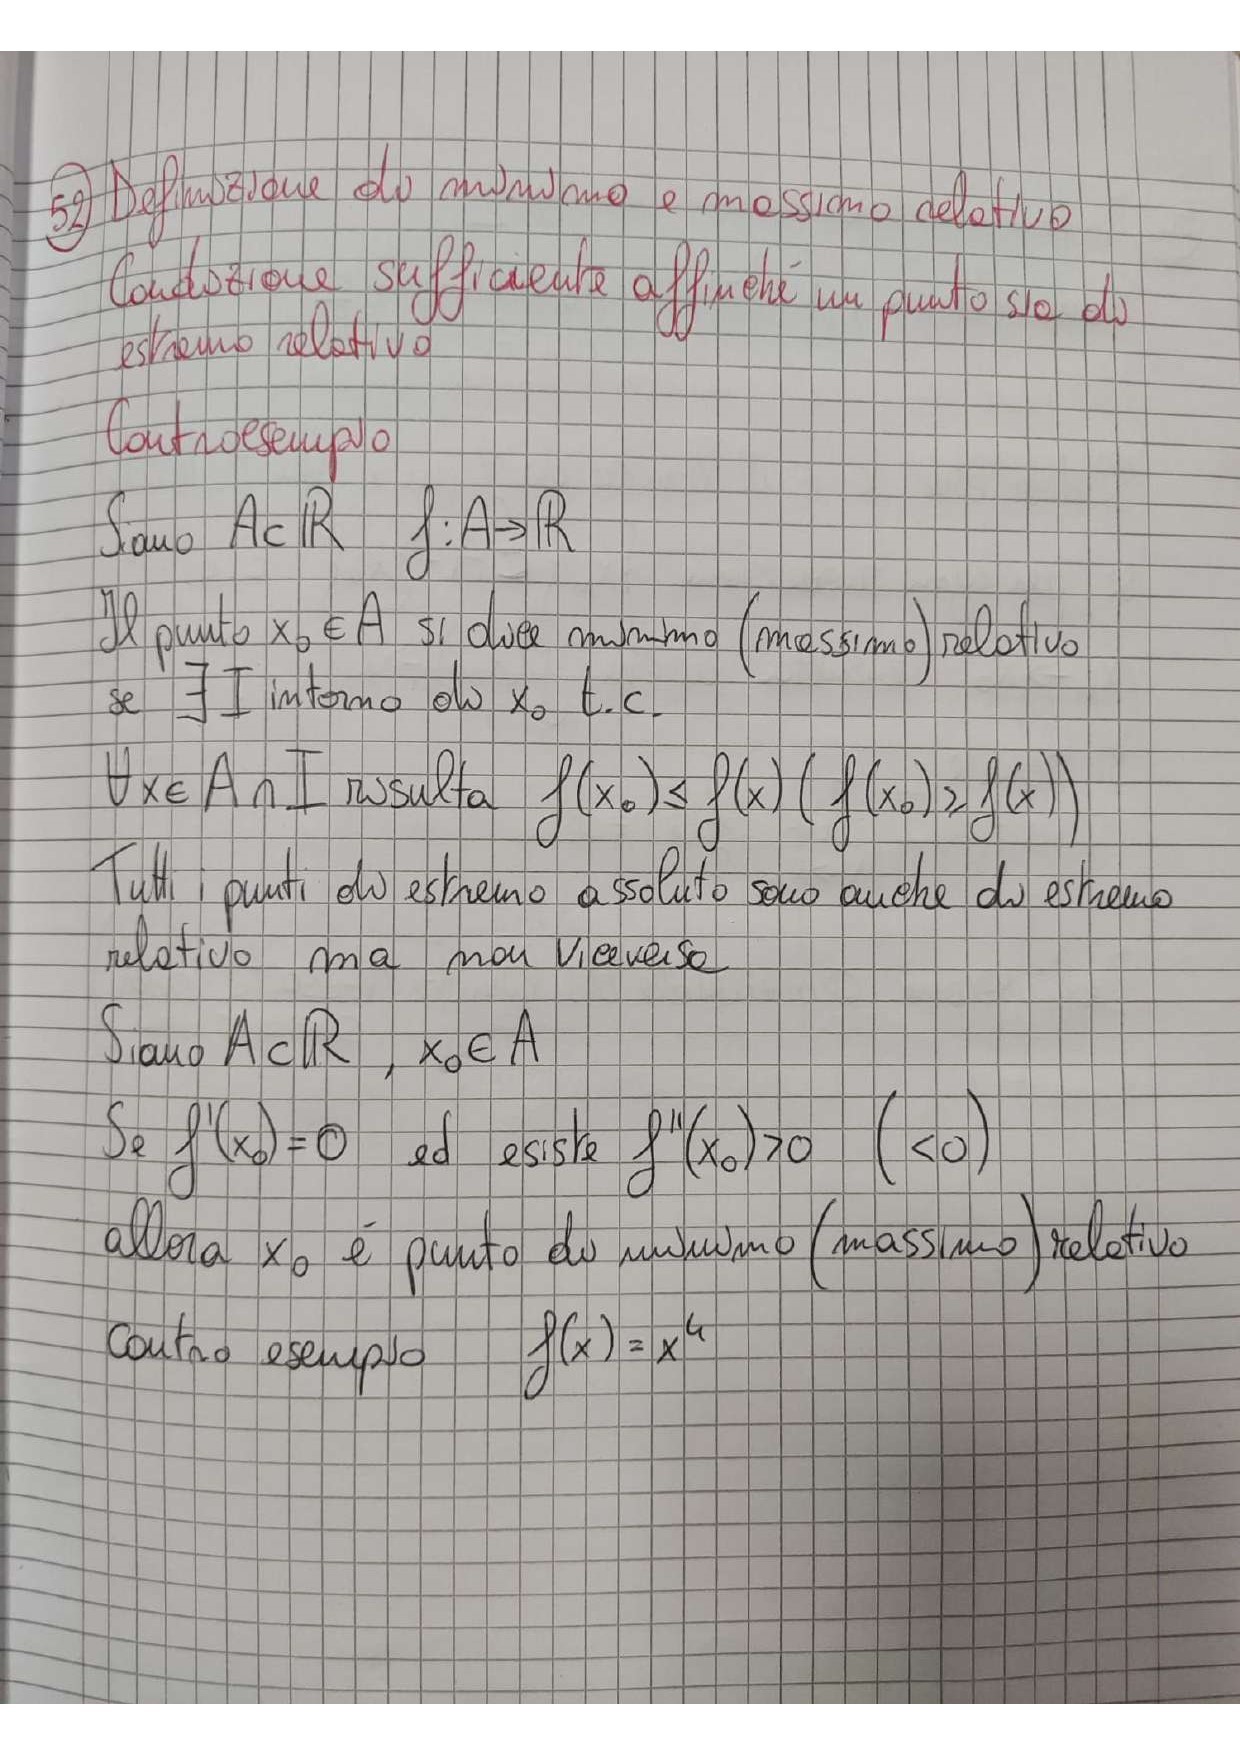 52) Definizione di minimo e massimo relativo
Condizione sufficiente affinché un punto sia di
estremo relativo
Controesempio
Siano A⊂ℝ f:A→ℝ
Il punto x₀∈A si dice minimo (massimo) relativo
se ∃ I intorno di x₀ t.c.
∀x∈A∩I risulta f(x₀)≤f(x) (f(x₀)≥f(x))
Tutti i punti di estremo assoluto sono anche di estremo
relativo ma non viceversa
Siano A⊂ℝ, x₀∈A
Se f'(x₀)=0 ed esiste f''(x₀)>0 (<0)
allora x₀ é punto di minimo (massimo) relativo
contro esempio f(x)=x⁴